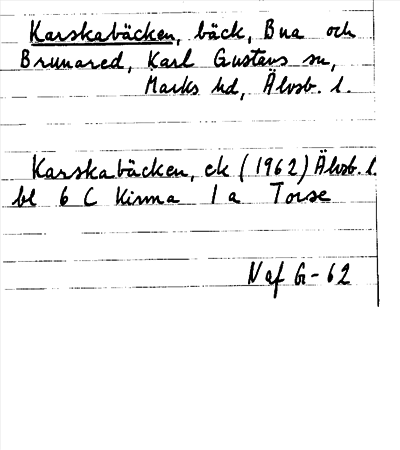 Karskabäcken, bäck, Bua och
Brunared, Karl Gustavs sn,
Marks hd, Älvsb. l.
Karskabäcken, ek (1962) Älvsb. l.
bl 6 C Kinna 1 a Torse
Naf G-62